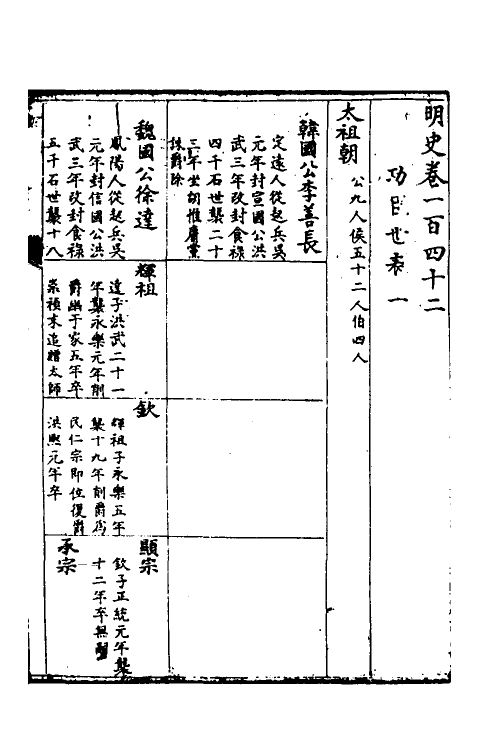 明史卷一百四十二
功臣世表一
太祖朝
公九人侯五十二人伯四人
韓國公李善長
定遠人從起兵吳
元年封宣國公洪
武三年改封食祿
四千石世襲二十
三年坐胡惟庸黨
誅爵除
魏國公徐達
鳳陽人從起兵吳
元年封信國公洪
武三年改封食祿
五千石世襲十八
輝祖
達子洪武二十一
年襲永樂元年削
爵幽于家五年卒
崇禎末追贈太師
欽
輝祖子永樂五年
襲十九年削爵爲
民仁宗即位復爵
洪熙元年卒
顯宗
欽子正統元年襲
十二年卒無嗣
承宗